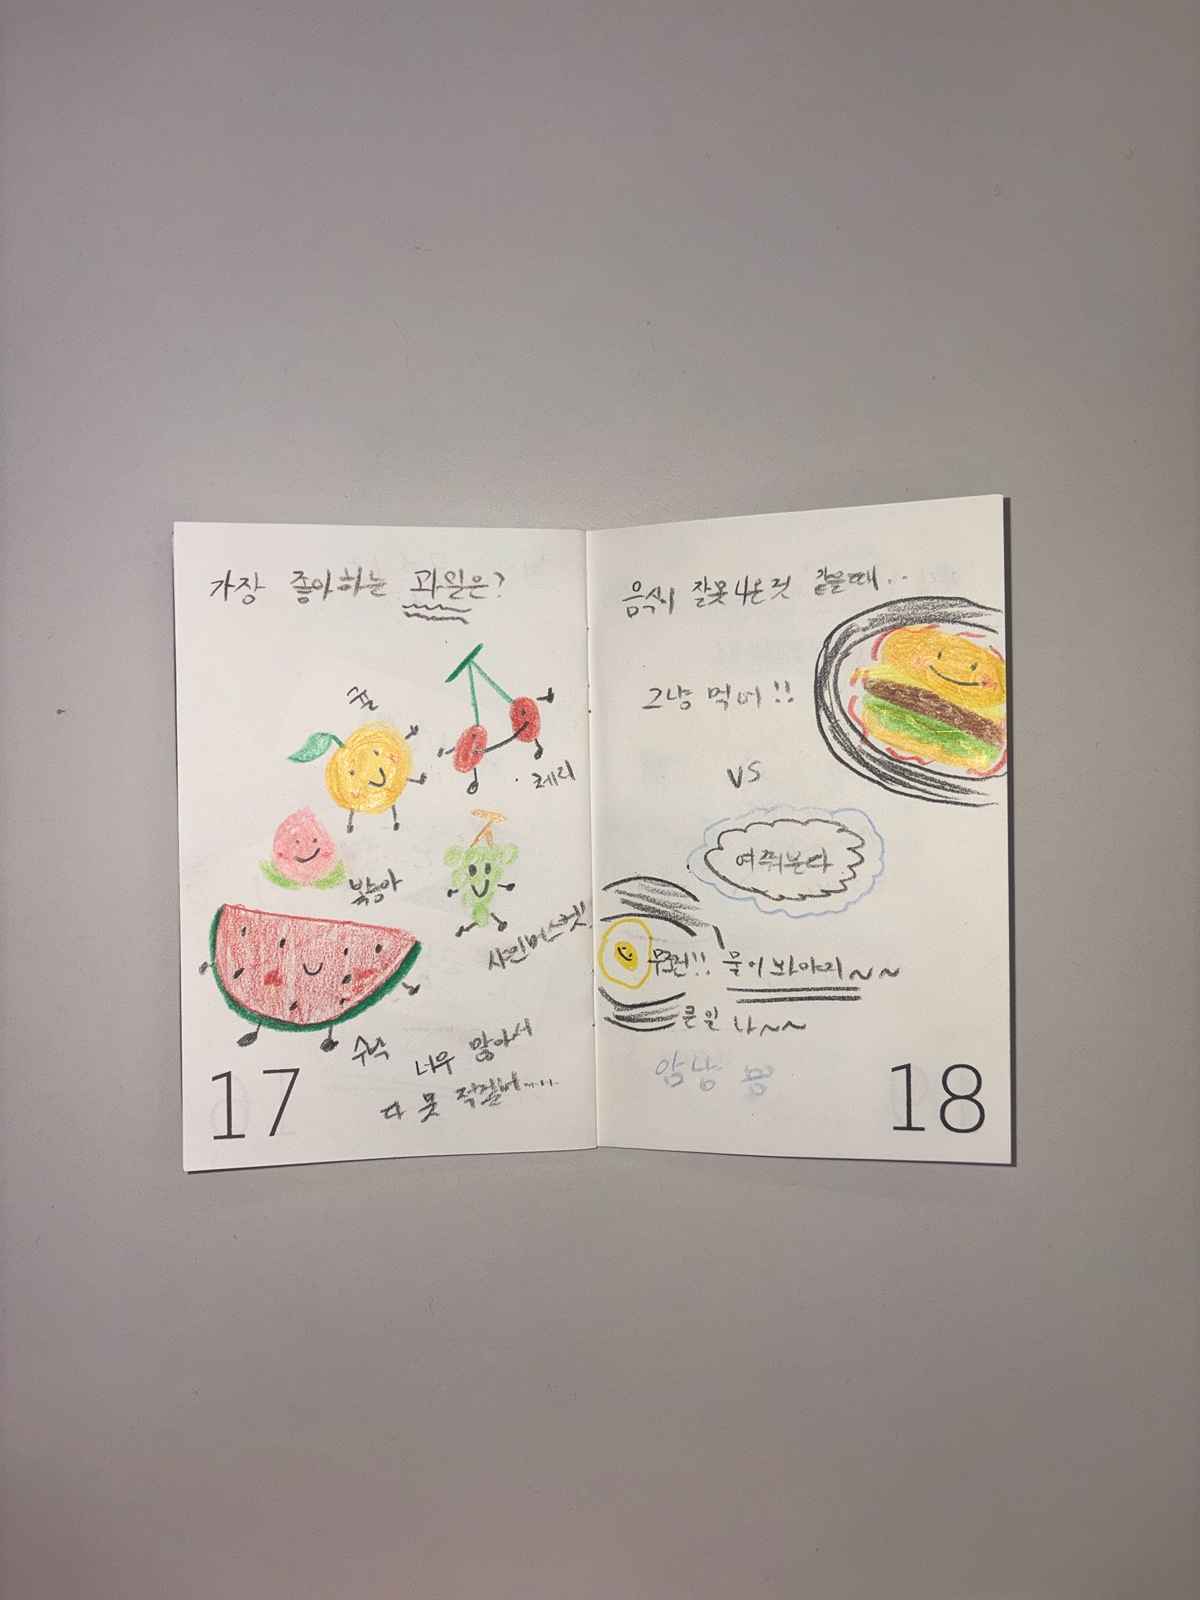 가장 좋아하는 과일은?
귤
체리
복숭아
샤인머스켓!
수박
너무 많아서
다 못 적겠어.....
17
음식이 잘못 나온 것 같을 때..
그냥 먹어!!
VS
여쭤본다
무조건!! 물어봐야지~~
큰일 나~~
얌냠
18